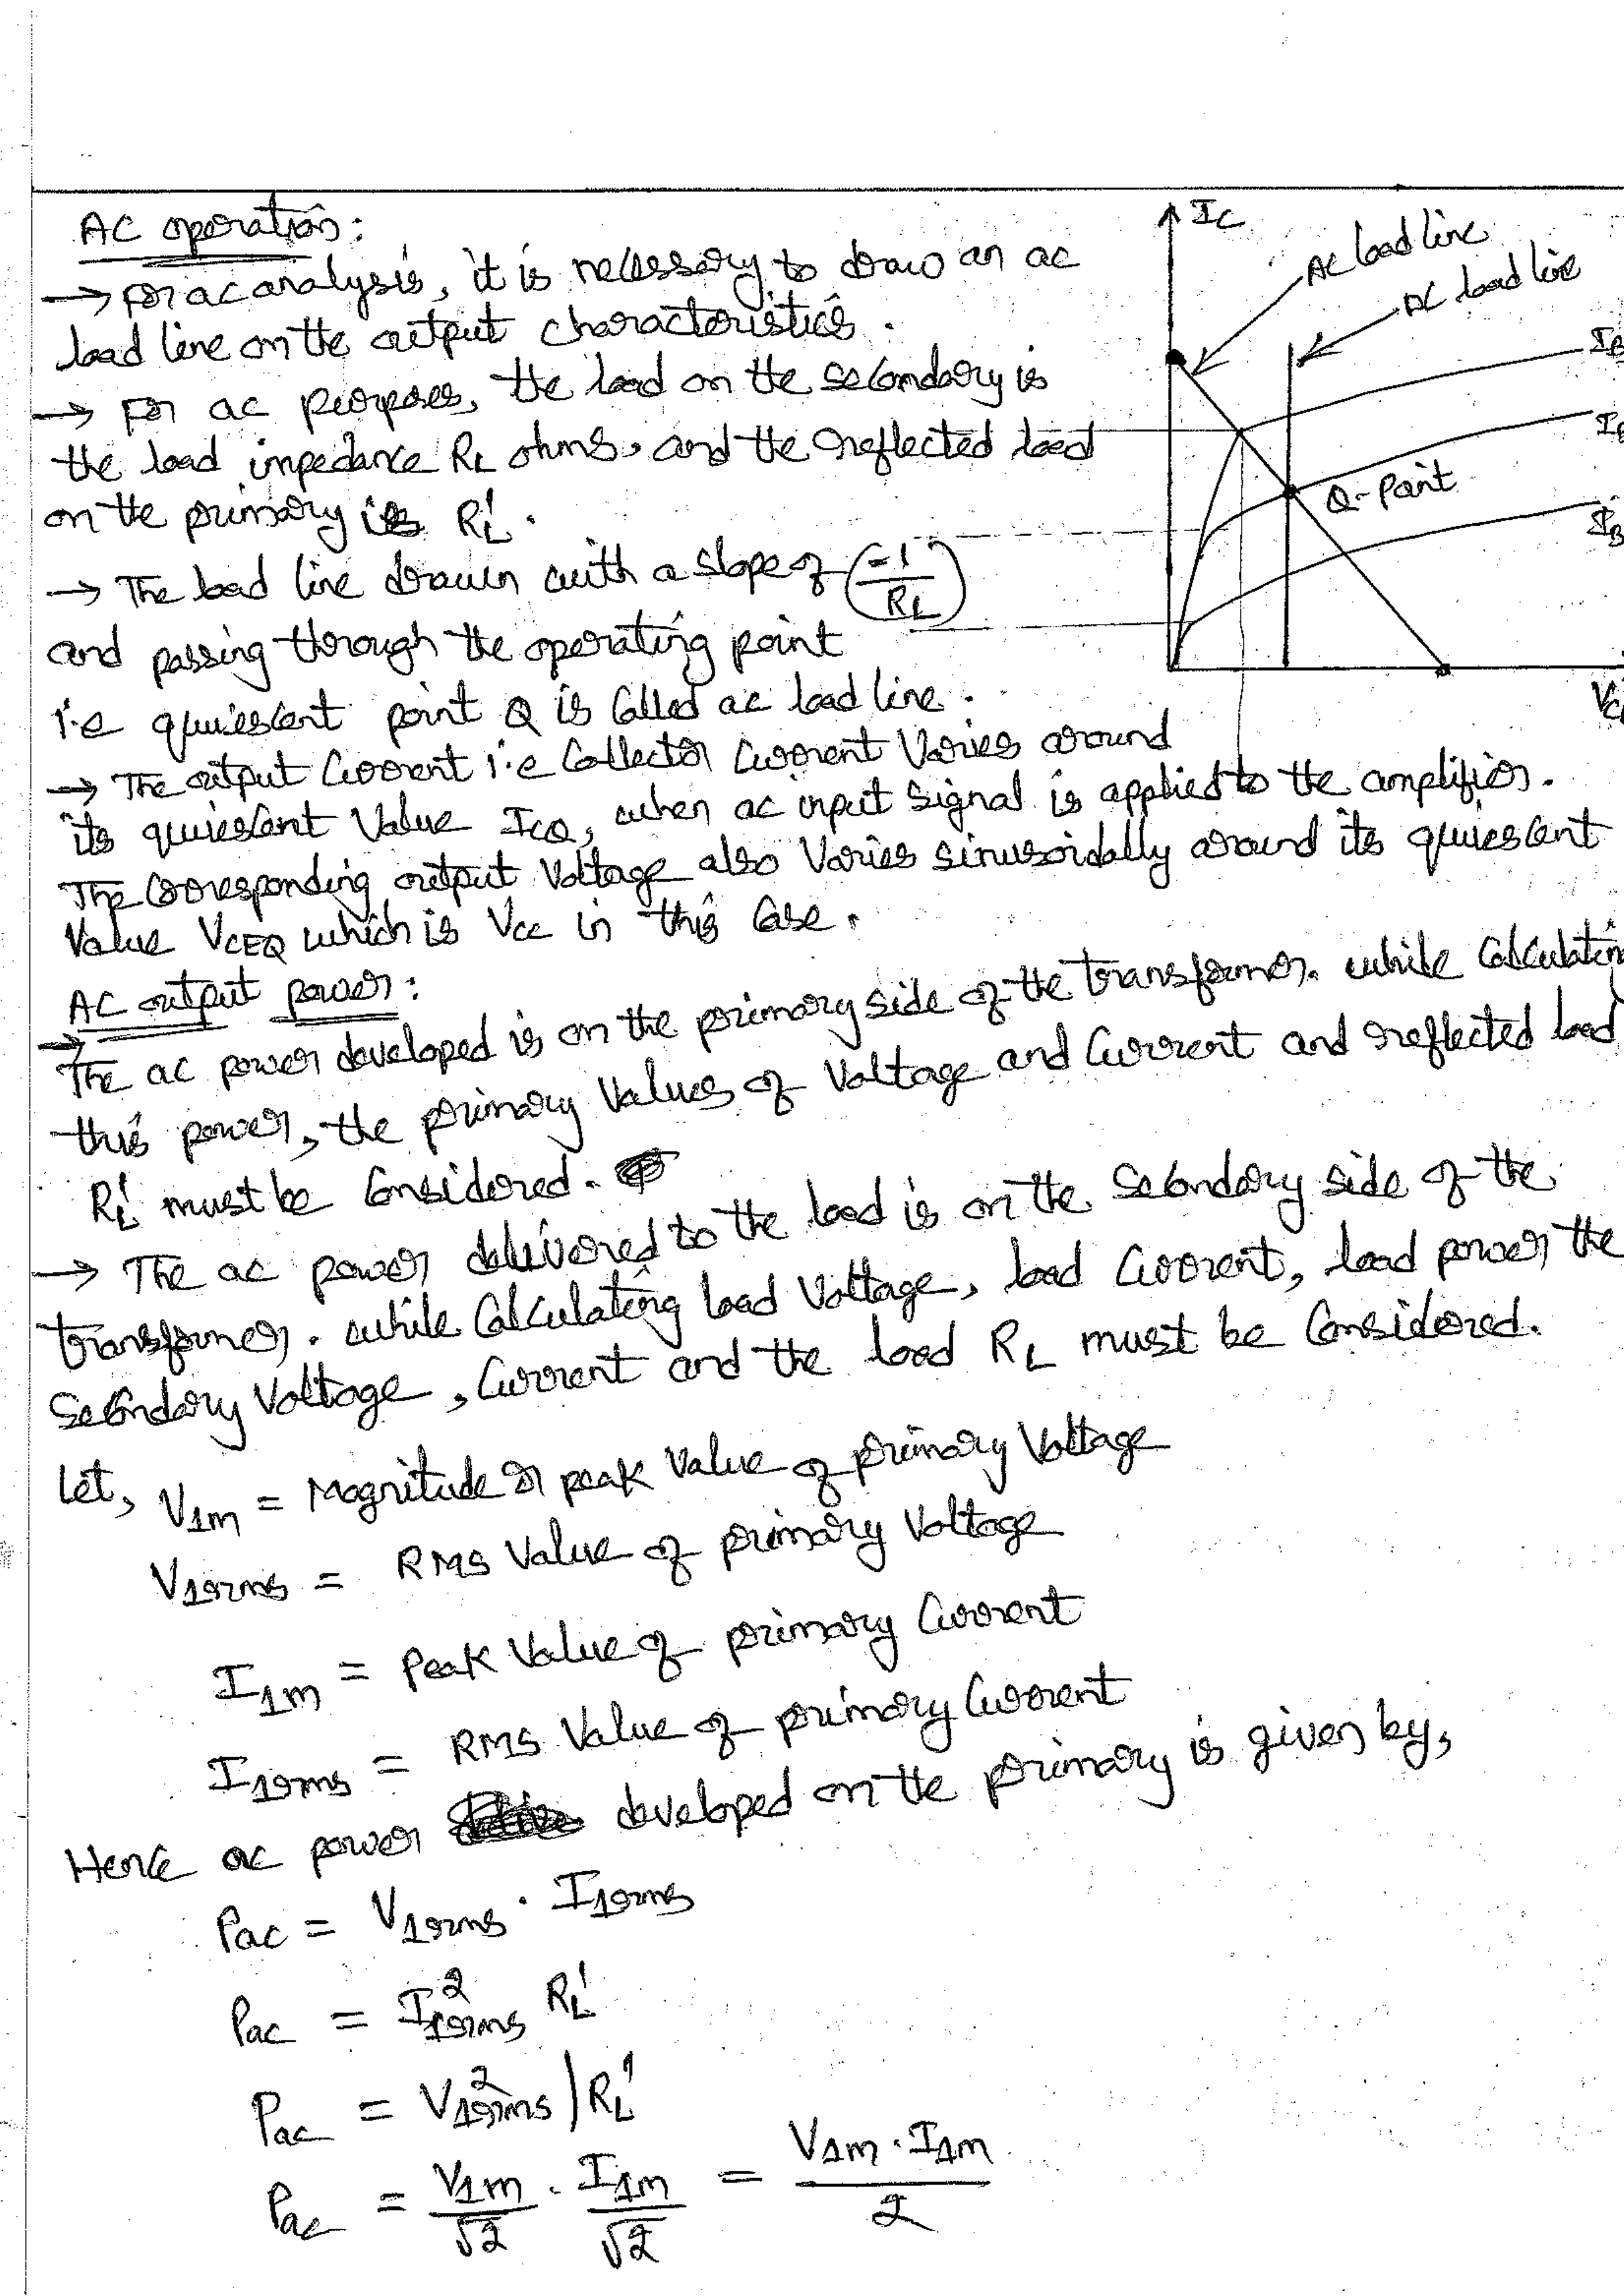 AC operation:
→ For ac analysis, it is necessary to draw an ac
load line on the output characteristics.
→ For ac purposes, the load on the secondary is
the load impedance RL ohms, and the reflected load
on the primary is RL'.
→ The load line drawn with a slope of (-1/RL')
and passing through the operating point
i.e quiescent point Q is called ac load line.
→ The output current i.e collector current varies around
its quiescent value ICQ, when ac input signal is applied to the amplifier.
The corresponding output voltage also varies sinusoidally around its quiescent
value VCEQ which is Vcc in this case.
IC
AC load line
DC load line
IB
IB
Q-Point
IB
AC output power:
→ The ac power developed is on the primary side of the transformer. while calculatin
this power, the primary values of voltage and current and reflected load
RL' must be considered.
→ The ac power delivered to the load is on the secondary side of the
transformer. while calculating load voltage, load current, load power the
secondary voltage, current and the load RL must be considered.
Let, V1m = Magnitude or peak value of primary voltage
V1rms = RMS value of primary voltage
I1m = Peak value of primary current
I1rms = RMS value of primary current
Hence ac power developed on the primary is given by,
Pac = V1rms . I1rms
Pac = I1rms² RL'
Pac = V1rms² / RL'
Pac = V1m/√2 . I1m/√2 = V1m . I1m / 2